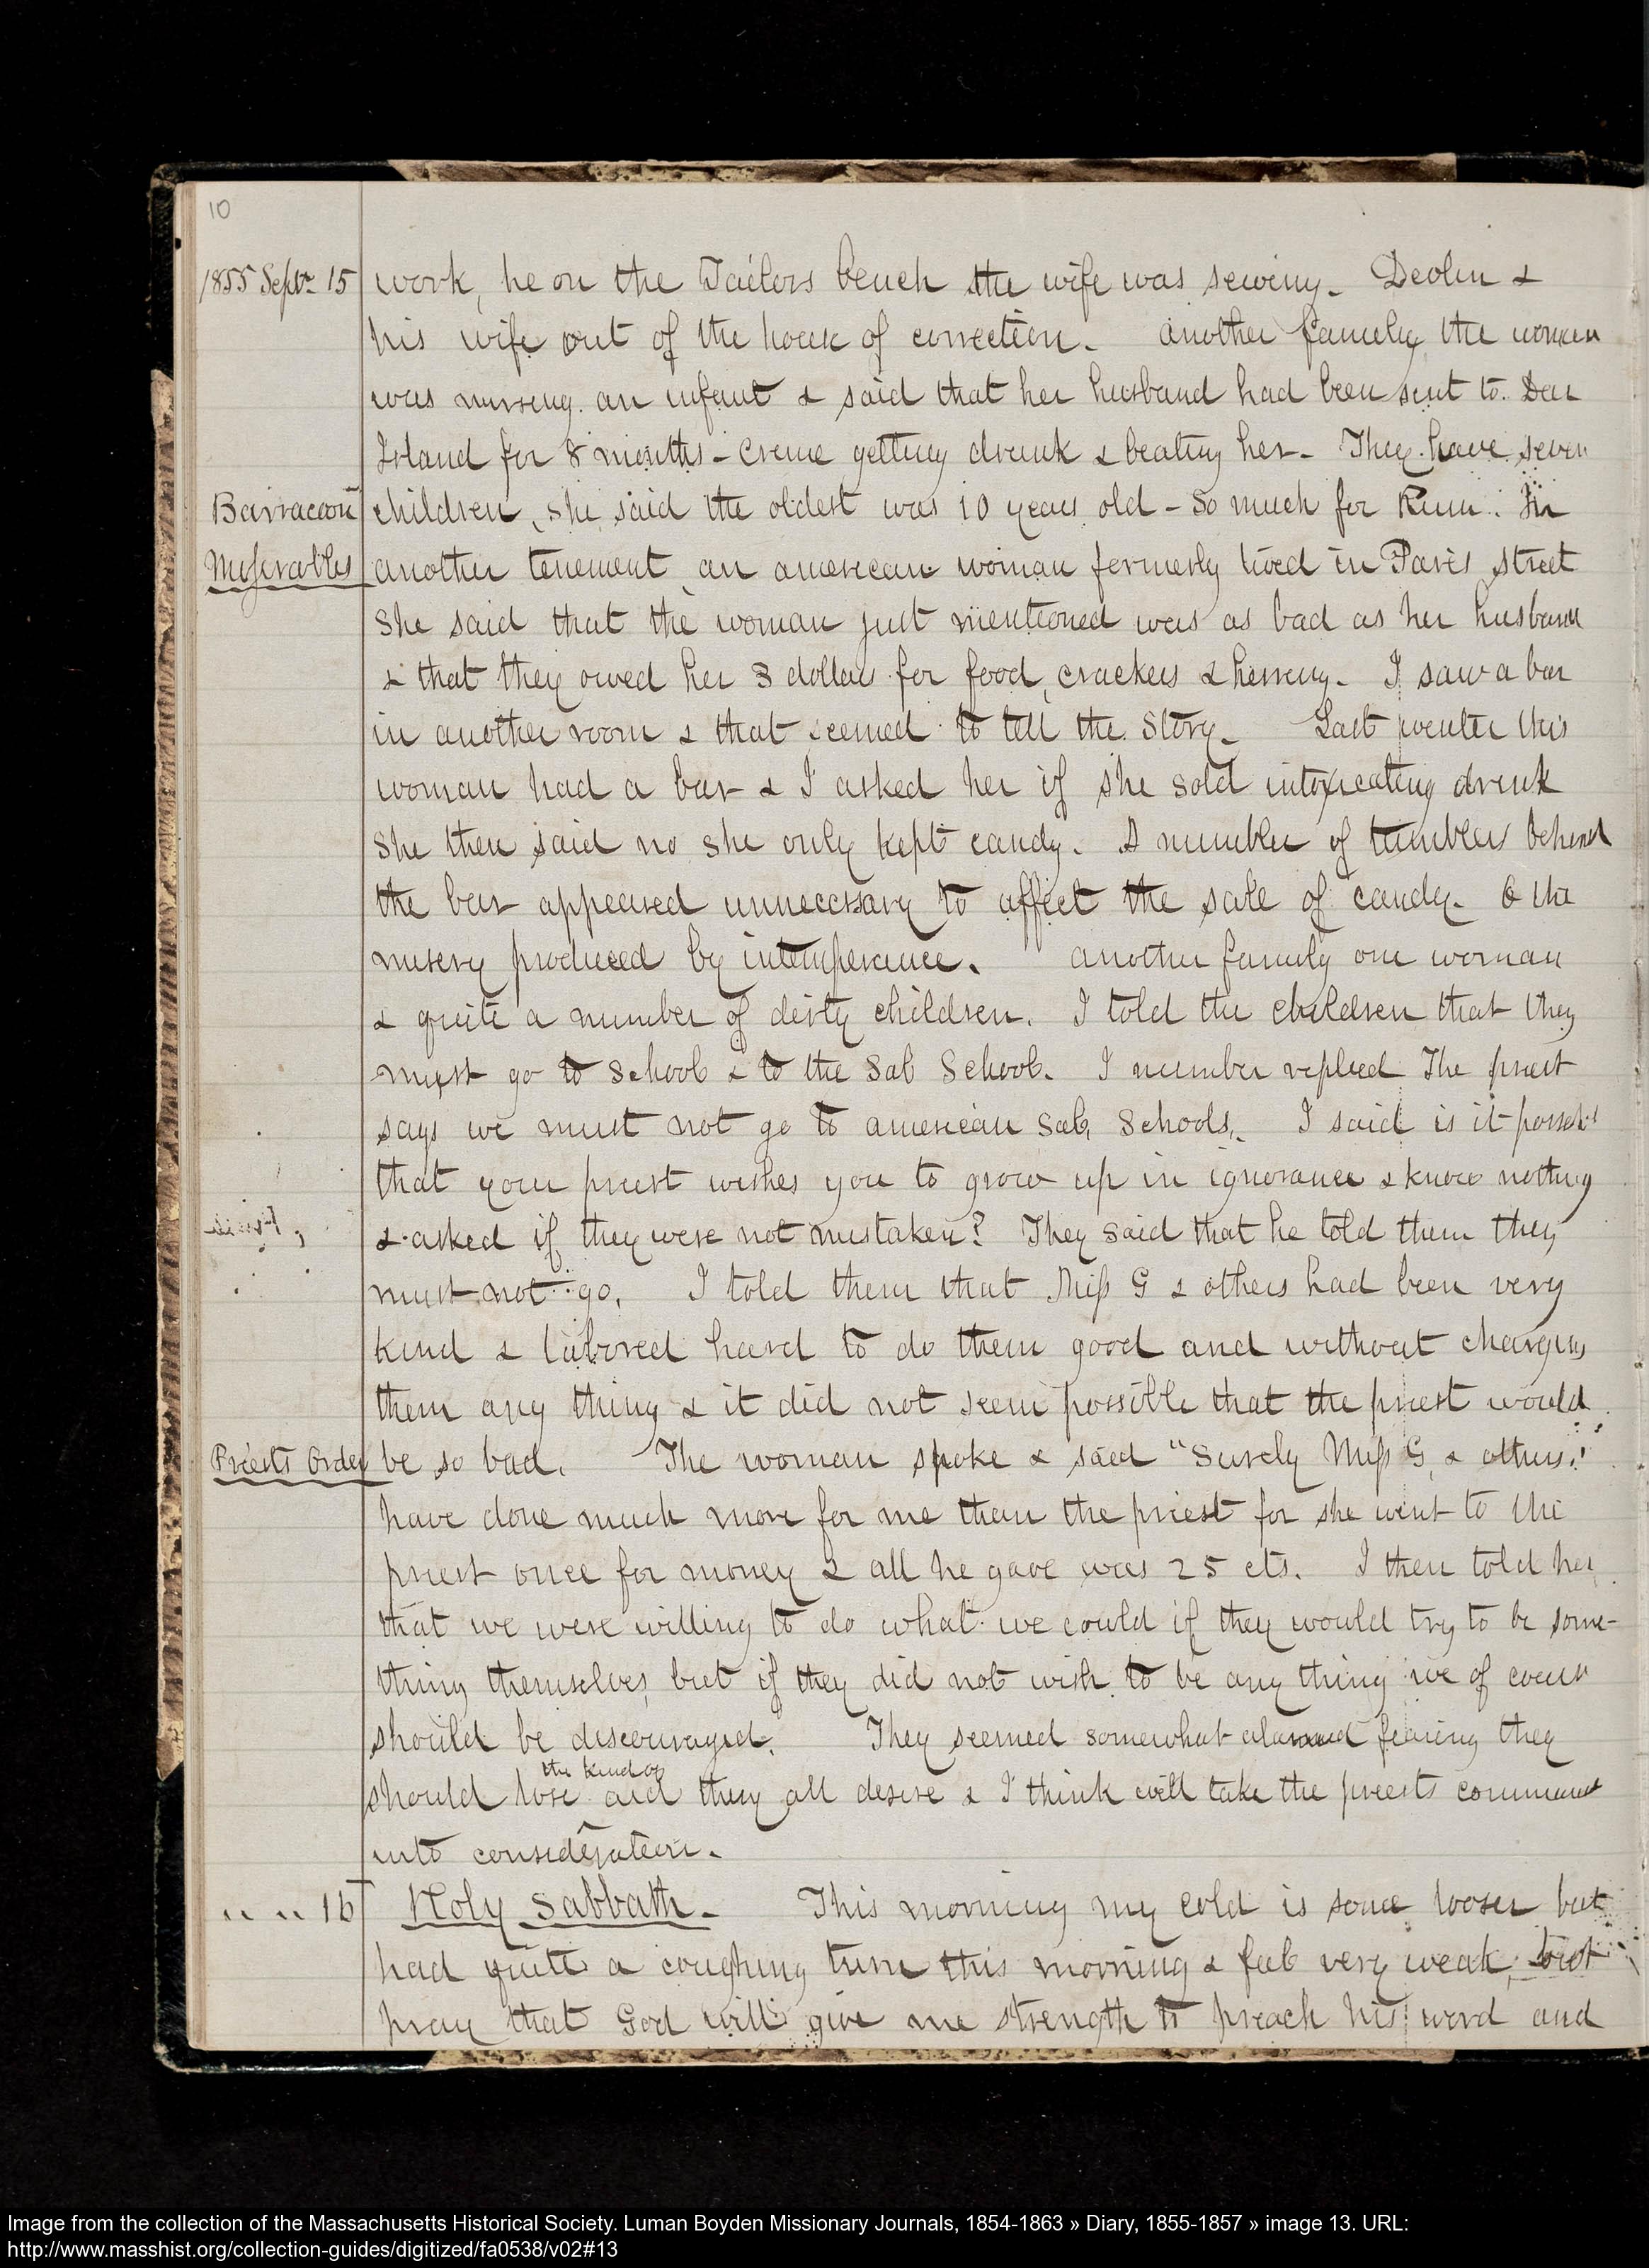 10
1855 Septr 15 work, he on the Tailors bench the wife was sewing. Devlin &
his wife out of the house of correction. another family, the woman
was nursing an infant & said that her husband had been sent to Deer
Island for 8 months - crime getting drunk & beating her. They have seven
Barracoon children, she said the oldest was 10 years old - So much for Rum. In
Miserables another tenement an american woman formerly lived in Paris street
She said that the woman just mentioned was as bad as her husband
& that they owed her 3 dollars for food, crackers & herring. I saw a bar
in another room & that seemed to tell the story. Last winter this
woman had a bar & I asked her if she sold intoxicating drink
She then said no she only kept candy. A number of tumblers behind
the bar appeared unnecessary to affect the sale of candy. O the
misery produced by intemperance. another family one woman
& quite a number of dirty children. I told the children that they
must go to School & to the Sab School. I number replied The priest
says we must not go to american Sab, Schools,. I said is it possible
that your priest wishes you to grow up in ignorance & know nothing
& asked if they were not mistaken? They said that he told them they
must not go. I told them that Miss G & others had been very
kind & labored hard to do them good and without charging
them any thing & it did not seem possible that the priest would
Priests Order be so bad. The woman spoke & said "Surely Miss G, & others,
have done much more for me than the priest for she went to the
priest once for money & all he gave was 25 cts. I then told her
that we were willing to do what we could if they would try to be some-
thing themselves, but if they did not wish to be any thing we of course
should be discouraged. They seemed somewhat alarmed fearing they
the kind of
should lose aid they all desire & I think will take the priests command
into consideration.
" " 16 Holy Sabbath. This morning my cold is some looser but
had quite a coughing turn this morning & feel very weak, but
pray that God will give me strength to preach his word and
Image from the collection of the Massachusetts Historical Society. Luman Boyden Missionary Journals, 1854-1863 » Diary, 1855-1857 » image 13. URL:
http://www.masshist.org/collection-guides/digitized/fa0538/v02#13